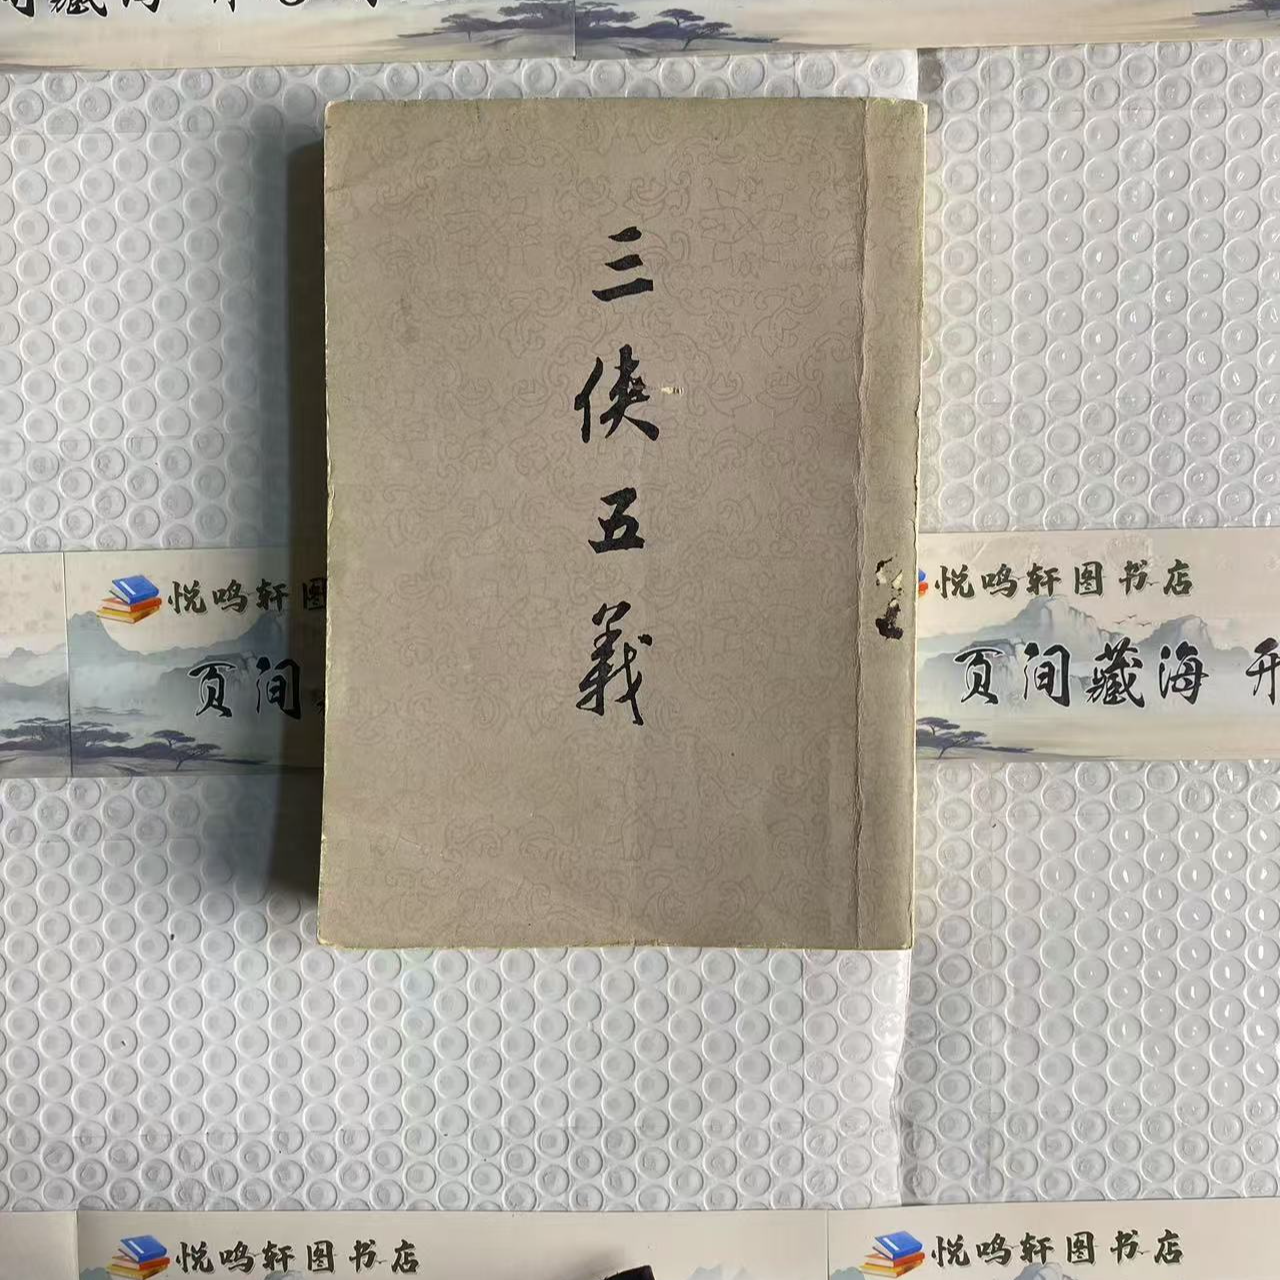 三
俠
五
義
悦鸣轩图书店
页间藏海 开
悦鸣轩图
页间
悦鸣轩图书店
悦鸣轩图书店